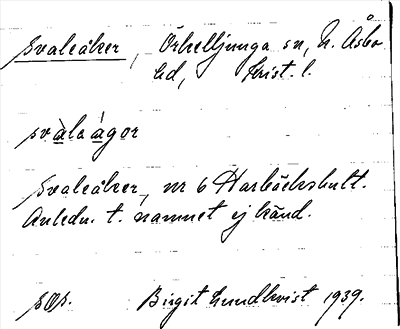 Svaleåker, Örkelljunga sn, N. Åsbo
hd, Krist. l.
svàlaágor
Svaleåker, nr 6 Harbäckshult.
Anledn. t. namnet ej känd.
sop. Birgit Lundkvist 1939.